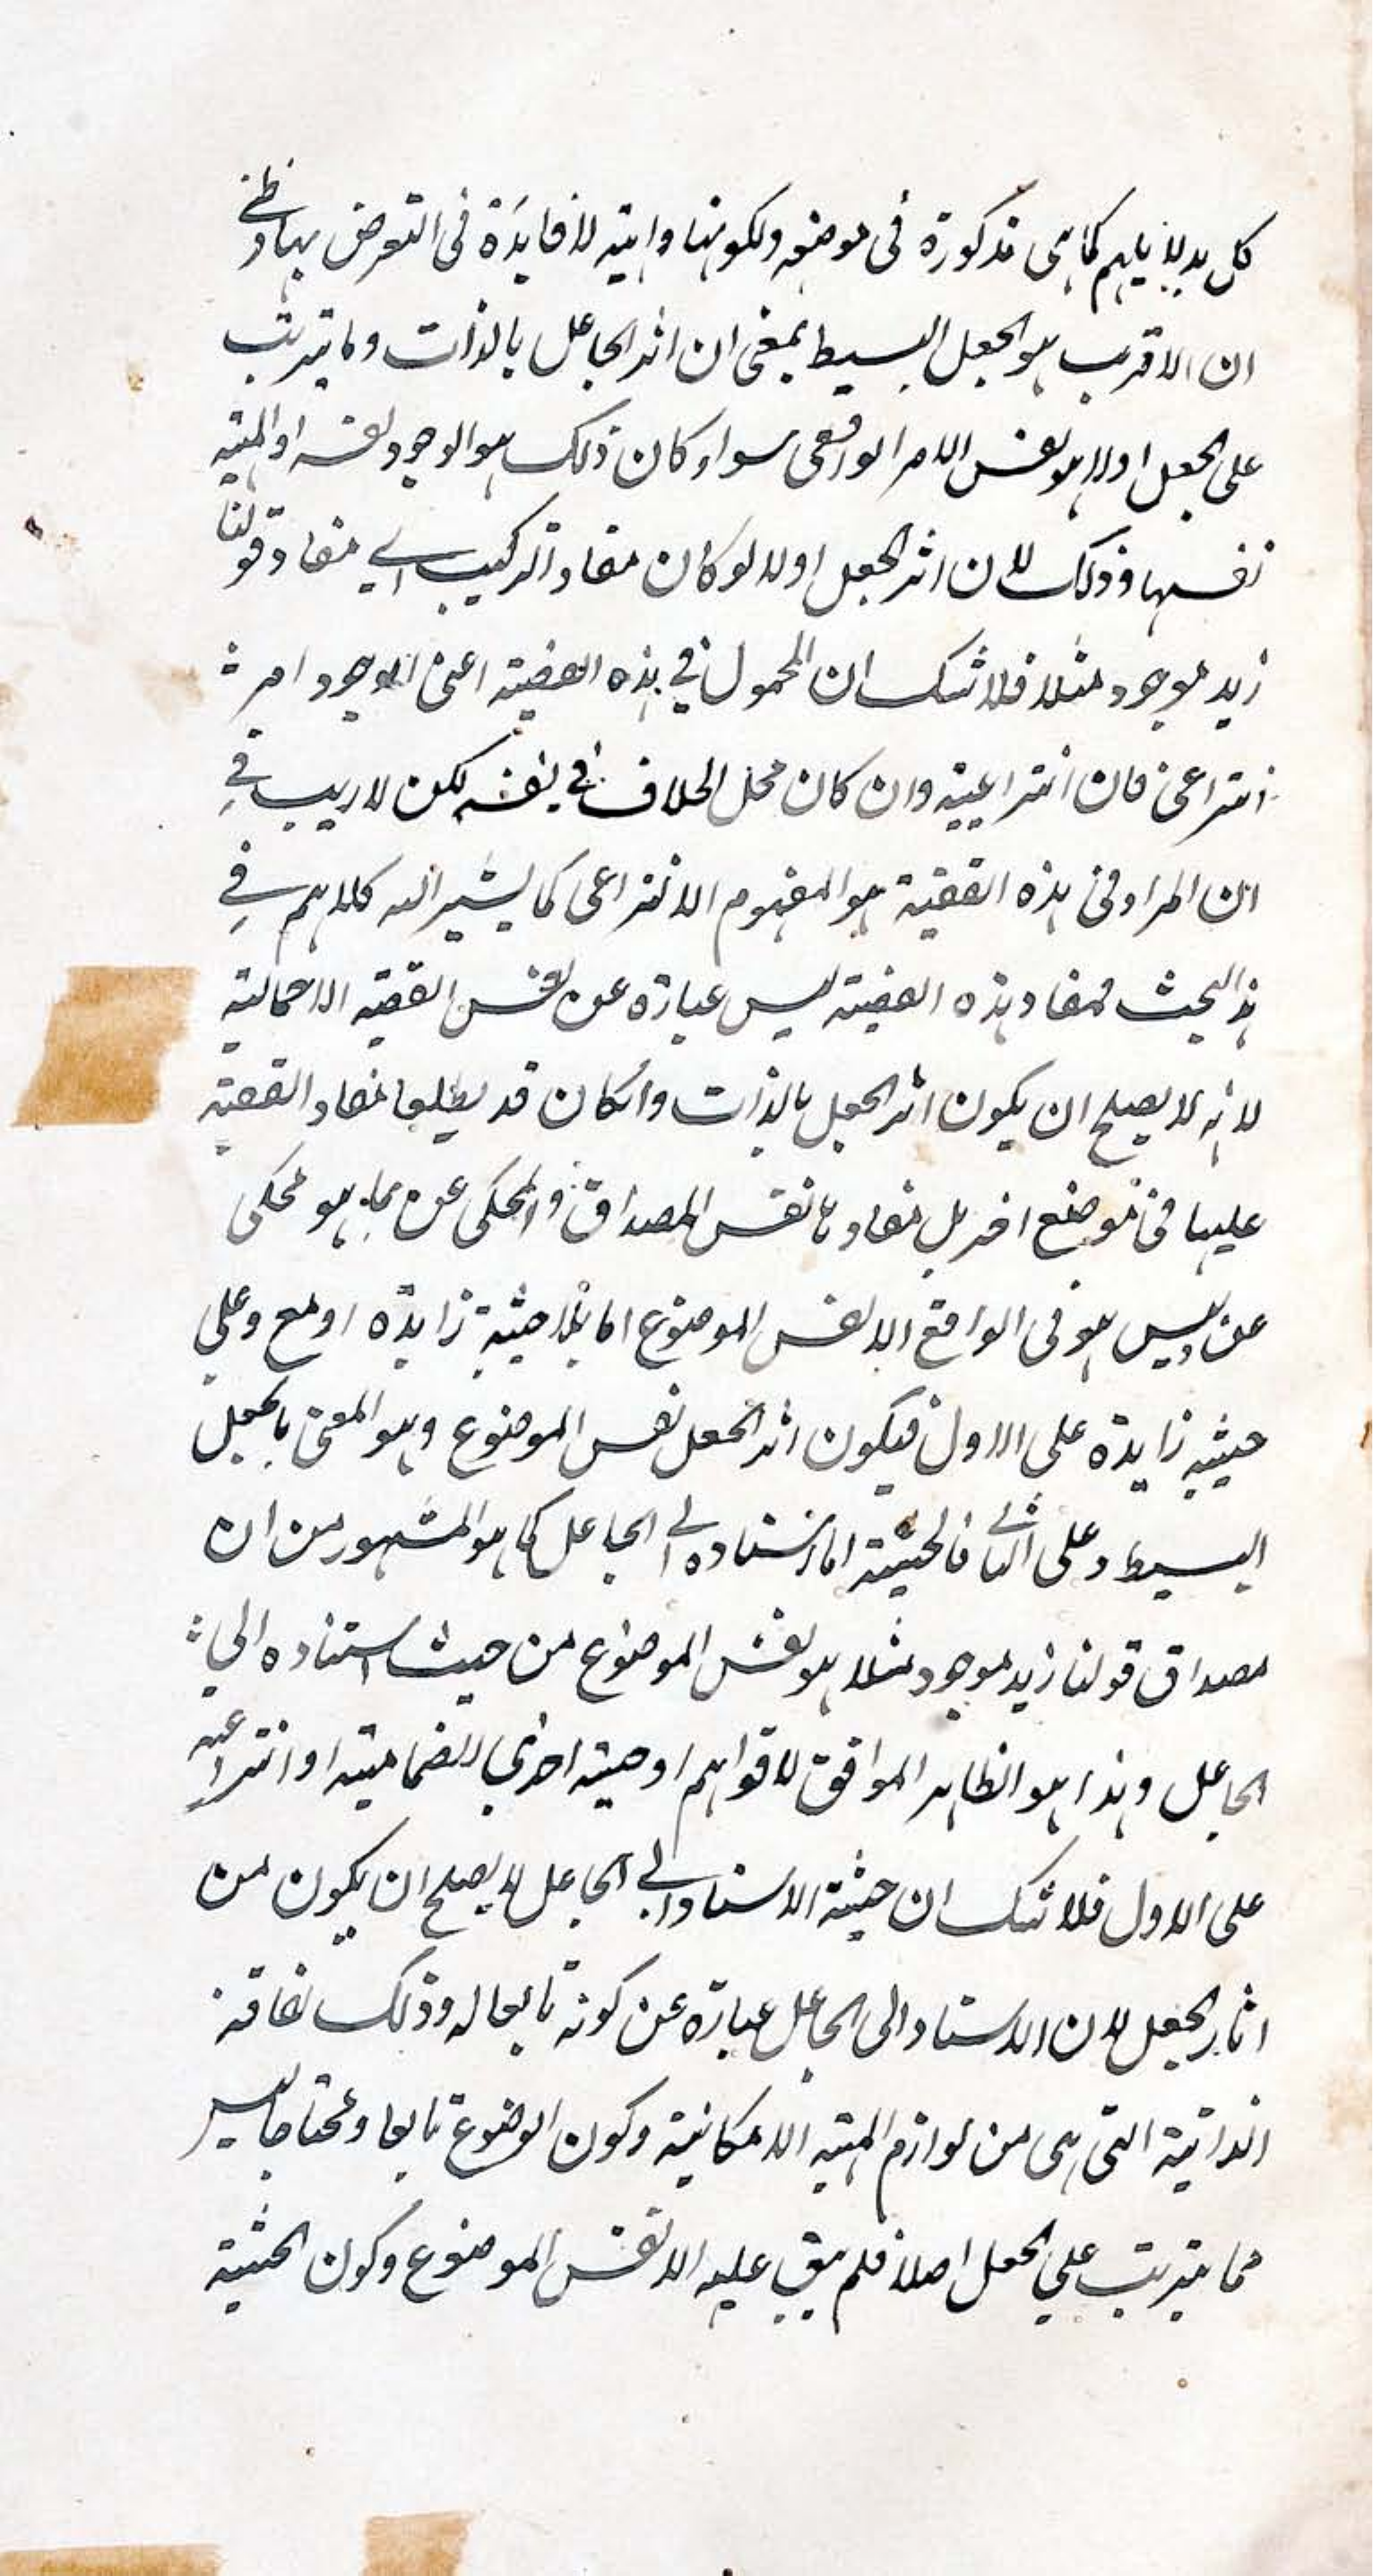 كل بدلايلهم كما هى مذكورة فى موضعه ولكونها واهية لا فايدة فى التعرض بها وظنى
ان الاقرب هو الجعل البسيط بمعنى ان اثر الجاعل بالذات وما يترتب
على الجعل اولا هو نفس الامر الواقعى سواء كان ذلك هو الوجود نفسه او المهية
نفسها وذلك لان اثر الجعل اولا لو كان مفاد التركيب اى مفاد قولنا
زيد موجود مثلا فلا شك ان المحمول فى هذه القضية اعنى الموجود امر
انتزاعى فان انتزاعيته وان كان محل الخلاف فى نفسه لكن لا ريب فى
ان المراد فى هذه القضية هو المفهوم الانتزاعى كما يشير اليه كلامهم فى
هذا البحث فمفاد هذه القضية ليس عبارة عن نفس القضية الاجمالية
لانه لا يصلح ان يكون اثر الجعل بالذات وان كان قد يطلق مفاد القضية
عليها فى موضع اخر بل مفادها نفس المصداق والمحكى عن بما هو محكى
عن وليس هو فى الواقع الا نفس الموضوع اما بلا حيثية زايدة او مع وعلى
حيثية زايدة على الاول فيكون اثر الجعل نفس الموضوع وهو المعنى بالجعل
البسيط وعلى الثانى فالحيثية اما استناده الى الجاعل كما هو المشهور من ان
مصداق قولنا زيد موجود مثلا هو نفس الموضوع من حيث استناده الى
الجاعل وهذا هو الظاهر الموافق لاقوالهم او حيثية اخرى انضمامية او انتزاعية
على الاول فلا شك ان حيثية الاستناد الى الجاعل لا يصلح ان يكون من
اثار الجعل لان الاستناد الى الجاعل عبارة عن كونه تابعا له وذلك لفاقته
الذاتية التى هى من لوازم المهية الامكانية وكون الموضوع تابعا ومحتاجا ليس
مما يترتب على الجعل اصلا فلم يبق عليه الا نفس الموضوع وكون الحيثية